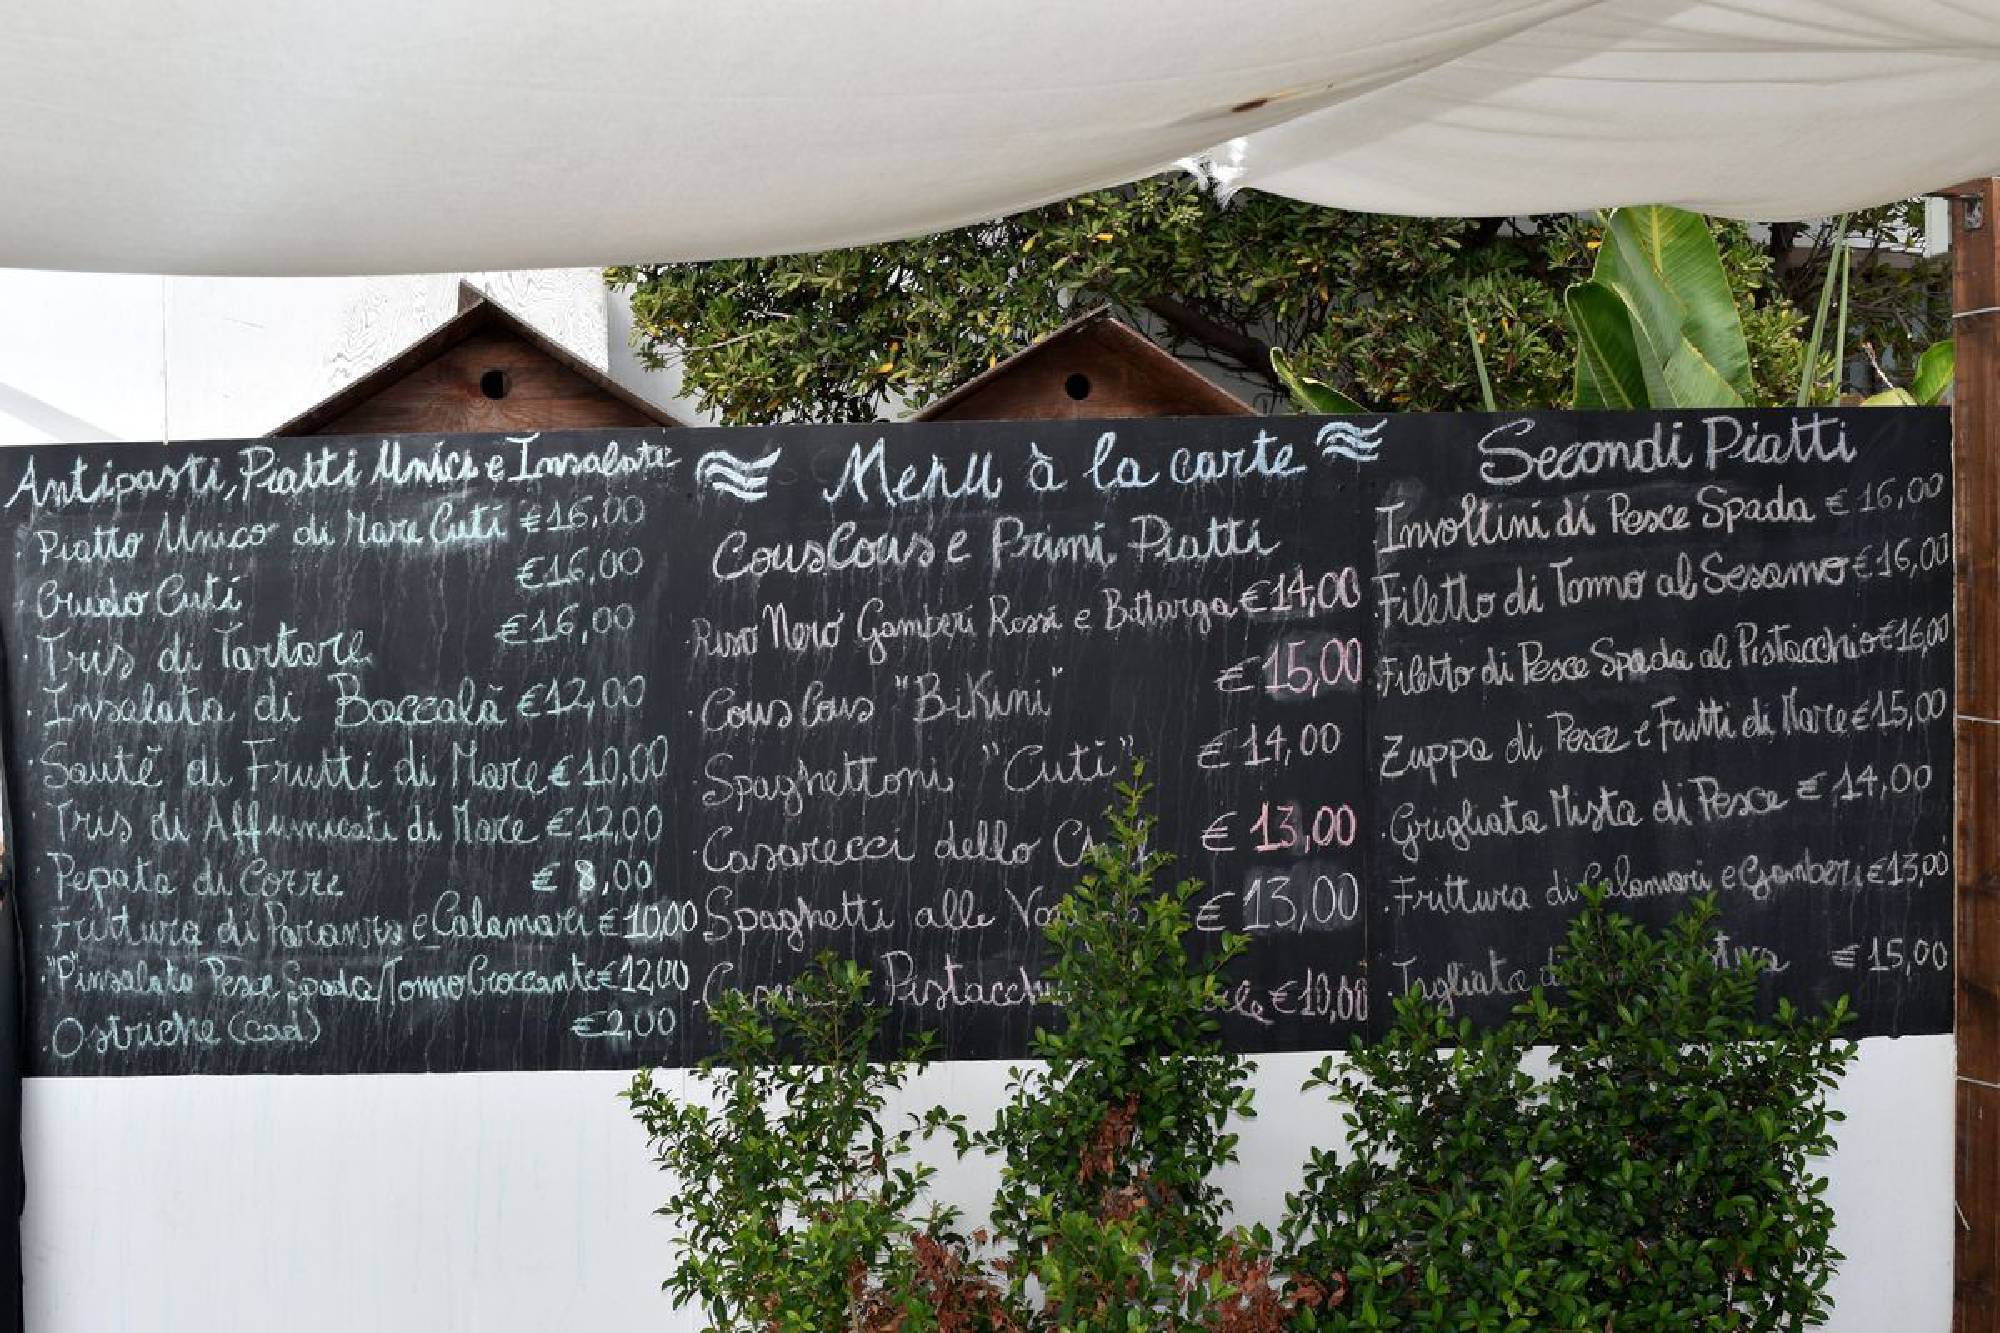 Antipasti, Piatti Unici e Insalate
· Piatto Unico di Mare Cutí €16,00
· Crudo Cutí €16,00
· Tris di Tartare €16,00
· Insalata di Baccalà €12,00
· Sautè di Frutti di Mare €10,00
· Tris di Affumicati di Mare €12,00
· Pepata di Cozze €8,00
· Frittura di Paranza e Calamari €10,00
· "P"insalata Pesce Spada/Tonno Croccante €12,00
· Ostriche (cad) €2,00
Menu à la carte
CousCous e Primi Piatti
· Riso Nero Gamberi Rossi e Bottarga €14,00
· CousCous "BiKini" €15,00
· Spaghettoni "Cuti" €14,00
· Casarecci dello €13,00
· Spaghetti alle €13,00
Pistacchi €10,00
Secondi Piatti
· Involtini di Pesce Spada €16,00
· Filetto di Tonno al Sesamo €16,00
· Filetto di Pesce Spada al Pistacchio €16,00
· Zuppa di Pesce e Frutti di Mare €15,00
· Grigliata Mista di Pesce €14,00
· Frittura di Calamari e Gamberi €13,00
· Tagliata €15,00